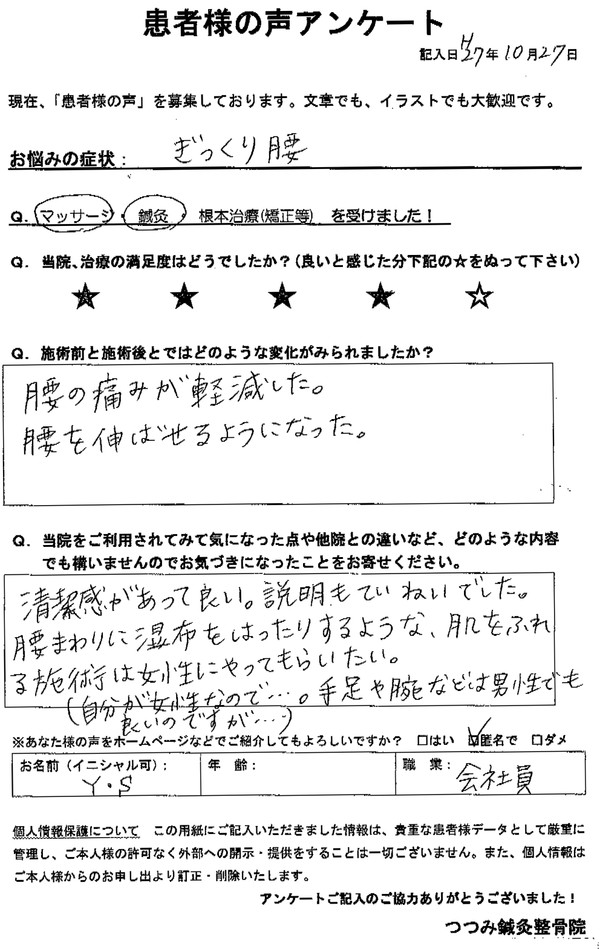 患者様の声アンケート
記入日 H27年10月27日
現在、「患者様の声」を募集しております。文章でも、イラストでも大歓迎です。
お悩みの症状: ぎっくり腰
Q. マッサージ・鍼灸・根本治療(矯正等) を受けました!
Q. 当院、治療の満足度はどうでしたか?(良いと感じた分下記の☆をぬって下さい)
★ ★ ★ ★ ☆
Q. 施術前と施術後とではどのような変化がみられましたか?
腰の痛みが軽減した。
腰を伸ばせるようになった。
Q. 当院をご利用されてみて気になった点や他院との違いなど、どのような内容
でも構いませんのでお気づきになったことをお寄せください。
清潔感があって良い。説明もていねいでした。
腰まわりに湿布をはったりするような、肌をふれ
る施術は女性にやってもらいたい。
(自分が女性なので…。手足や腕などは男性でも
良いのですが…)
※あなた様の声をホームページなどでご紹介してもよろしいですか? □はい ☑匿名で □ダメ
お名前(イニシャル可): 年 齢: 職 業:
Y・S 会社員
個人情報保護について この用紙にご記入いただきました情報は、貴重な患者様データとして厳重に
管理し、ご本人様の許可なく外部への開示・提供をすることは一切ございません。また、個人情報は
ご本人様からのお申し出より訂正・削除いたします。
アンケートご記入のご協力ありがとうございました!
つつみ鍼灸整骨院